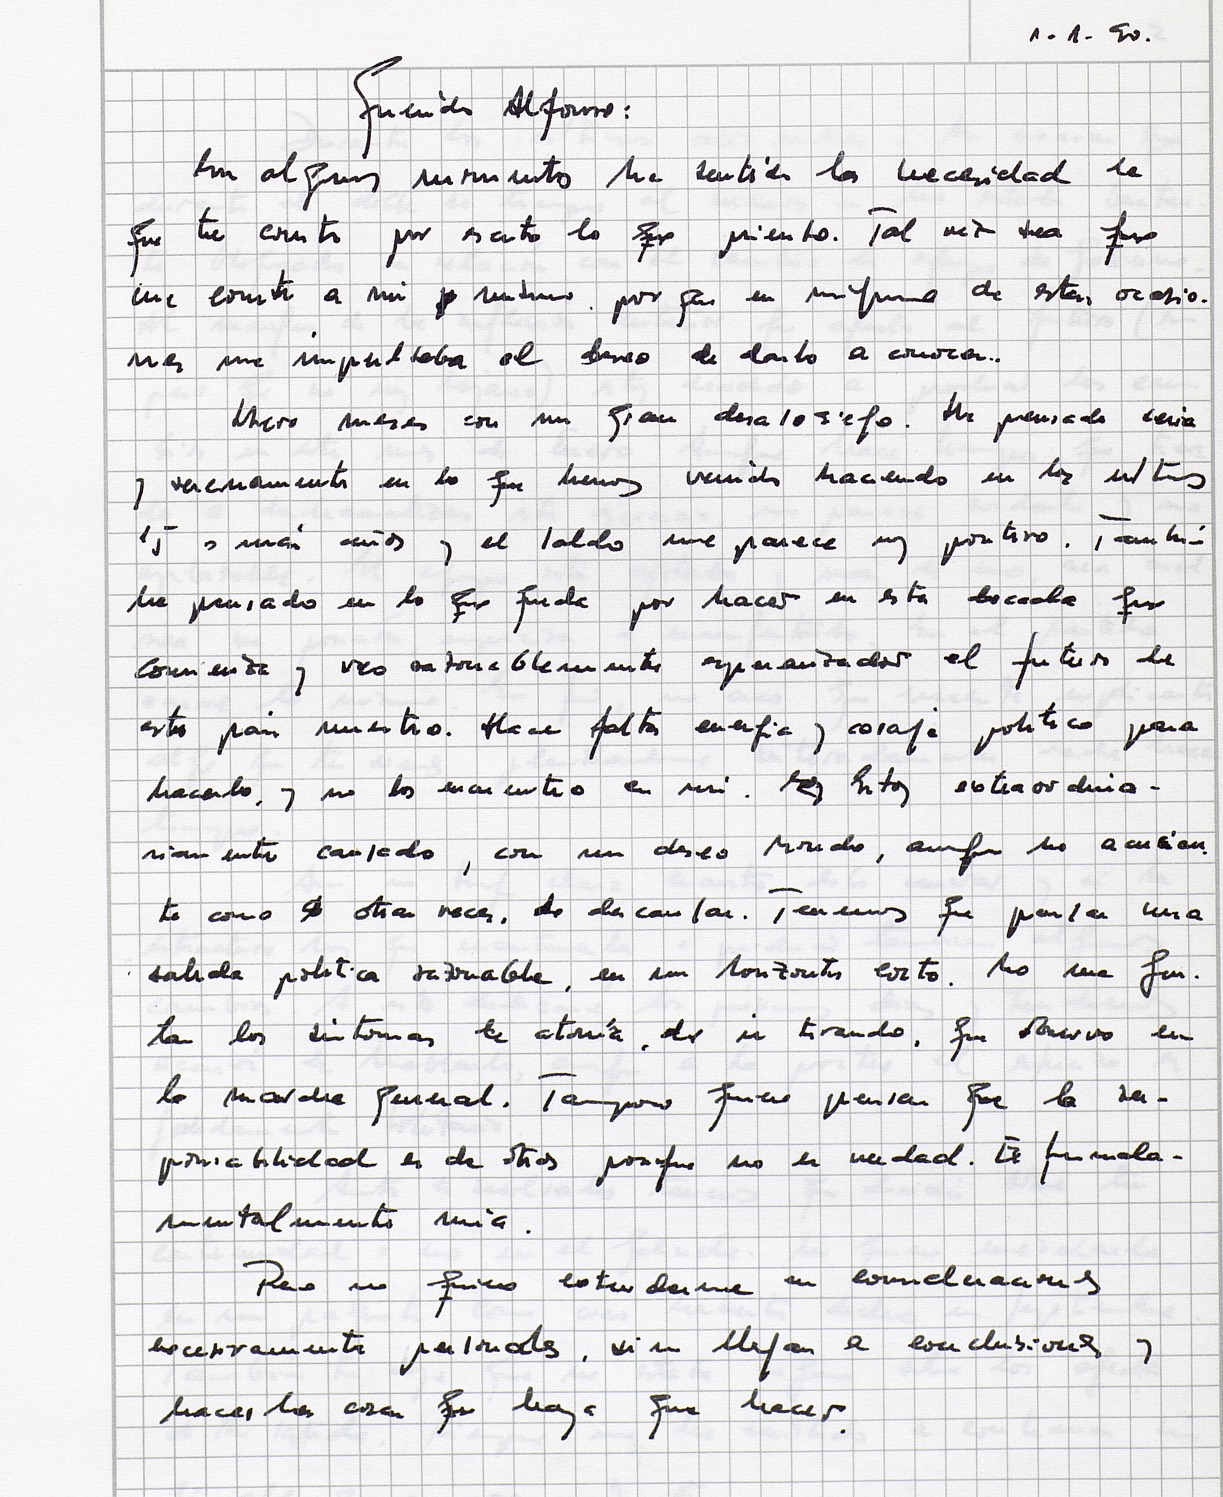 1-1-90.
Querido Alfonso:
En algunos momentos he sentido la necesidad de
que te conste por escrito lo que pienso. Tal vez sea que
me conste a mi mismo, porque en ninguna de estas ocasio-
nes me impulsaba el deseo de darlo a conocer.
Llevo meses con un gran desasosiego. He pensado seria
y serenamente en lo que hemos venido haciendo en los últimos
15 o más años y el saldo me parece muy positivo. También
he pensado en lo que queda por hacer en esta decada que
comienza y veo razonablemente esperanzador el futuro de
este país nuestro. Hace falta energia y coraje político para
hacerlo, y no los encuentro en mi. Estoy extraordina-
riamente cansado, con un deseo hondo, aunque no acucian-
te como otras veces, de descansar. Tenemos que pensar una
salida política razonable, en un horizonte corto. No me gus-
tan los síntomas de atonía, de ir tirando, que observo en
la marcha general. Tampoco quiero pensar que la res-
ponsabilidad es de otros porque no es verdad. Es fundala-
mentalmente mía.
Pero no quiero extenderme en consideraciones
excesivamente personales, sino llegar a conclusiones y
hacer las cosas que haya que hacer.